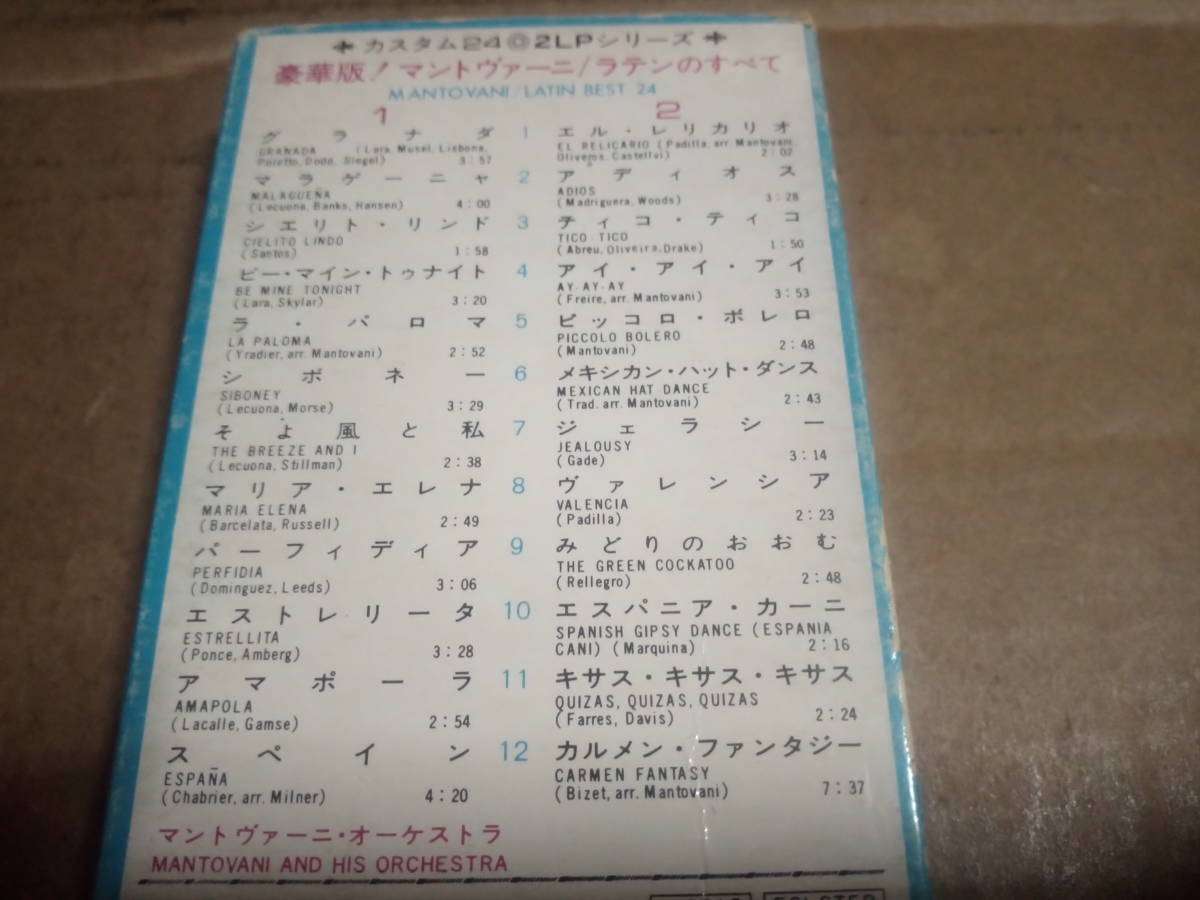 カスタム24◎2LPシリーズ
豪華版!マントヴァーニ/ラテンのすべて
MANTOVANI/LATIN BEST 24
1
グラナダ
GRANADA (Lara, Musel, Lisbona,
Poletto, Dodd, Siegel) 3:57
マラゲーニャ
MALAGUEÑA
(Lecuona, Banks, Hansen) 4:00
シエリト・リンド
CIELITO LINDO
(Santos) 1:58
ビー・マイン・トゥナイト
BE MINE TONIGHT
(Lara, Skylar) 3:20
ラ・パロマ
LA PALOMA
(Yradier, arr. Mantovani) 2:52
シボネー
SIBONEY
(Lecuona, Morse) 3:29
そよ風と私
THE BREEZE AND I
(Lecuona, Stillman) 2:38
マリア・エレナ
MARIA ELENA
(Barcelata, Russell) 2:49
パーフィディア
PERFIDIA
(Dominguez, Leeds) 3:06
エストレリータ
ESTRELLITA
(Ponce, Amberg) 3:28
アマポーラ
AMAPOLA
(Lacalle, Gamse) 2:54
スペイン
ESPAÑA
(Chabrier, arr. Milner) 4:20
1
2
3
4
5
6
7
8
9
10
11
12
2
エル・レリカリオ
EL RELICARIO (Padilla, arr. Mantovani,
Oliveros, Castellvi) 2:02
アディオス
ADIOS
(Madriguera, Woods) 3:28
ティコ・ティコ
TICO-TICO
(Abreu, Oliveira, Drake) 1:50
アイ・アイ・アイ
AY-AY-AY
(Freire, arr. Mantovani) 3:53
ピッコロ・ボレロ
PICCOLO BOLERO
(Mantovani) 2:48
メキシカン・ハット・ダンス
MEXICAN HAT DANCE
(Trad. arr. Mantovani) 2:43
ジェラシー
JEALOUSY
(Gade) 3:14
ヴァレンシア
VALENCIA
(Padilla) 2:23
みどりのおおむ
THE GREEN COCKATOO
(Rellegro) 2:48
エスパニア・カーニ
SPANISH GIPSY DANCE (ESPANIA
CANI) (Marquina) 2:16
キサス・キサス・キサス
QUIZAS, QUIZAS, QUIZAS
(Farres, Davis) 2:24
カルメン・ファンタジー
CARMEN FANTASY
(Bizet, arr. Mantovani) 7:37
マントヴァーニ・オーケストラ
MANTOVANI AND HIS ORCHESTRA